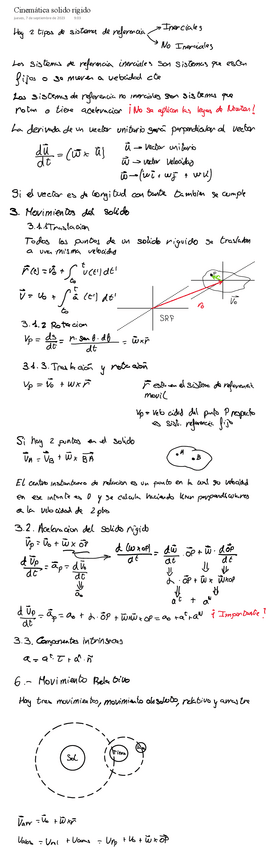 Cinemática solido rigido
jueves, 7 de septiembre de 2023
Hay 2 tipos de sistema de referencia
Inerciales
No Inerciales
Los sistemas de referencia inerciales son sistemas que estan
fijos o se mueven a velocidad cte
Los sistemas de referencia no inerciales son sistemas que
rotan o tiene aceleracion ¡No se aplican las leyes de Newton!
La derivada de un vector unitario será perpendicular al vector
du/dt = (w x u)
u → vector unitario
w → vector velocidad
Si el vector es de longitud constante tambien se cumple
3. Movimientos del solido
3.1.1 Translacion
Todos los puntos de un solido rigido se trasladan
a una misma velocidad
SRF
r₀
V₀
3.1.2 Rotacion
3.1.3. Translacion y rotacion
Vp = V₀ + w x r
r esta en el sistema de referencia
movil
Vp = Velocidad del punto P respecto
sist. referencia fijo
Si hay 2 puntos en el solido
VA = VB + w x BA
A
B
El centro instantaneo de rotacion es un punto en el cual su velocidad
en ese instante es 0 y se calcula haciendo lineas perpendiculares
a la velocidad de 2 ptos
3.2. Aceleracion del solido rigido
Vp = V₀ + w x OP
¡Importante!
3.3. Componentes intrinsecas
6.- Movimiento Relativo
Hay tres movimientos, movimiento absoluto, relativo y arrastre
Sol
Tierra
Varr = V₀ + w x r